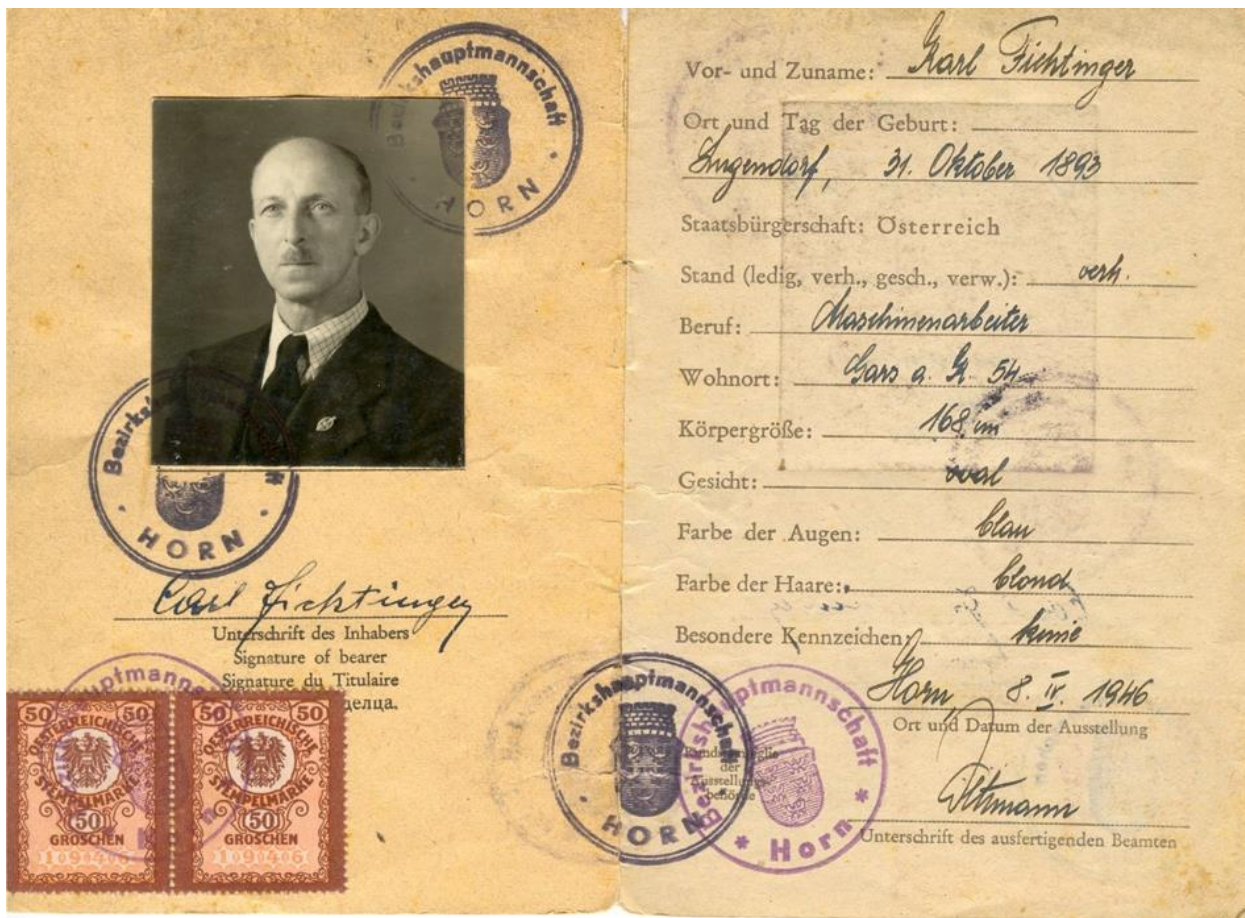 Bezirkshauptmannschaft
HORN
Bezirks
HORN
Carl Fichtinger
Unterschrift des Inhabers
Signature of bearer
Signature du Titulaire
делца.
50 50
OESTERREICHISCHE
STEMPELMARKE
50
GROSCHEN
1090406
50 50
OESTERREICHISCHE
STEMPELMARKE
50
GROSCHEN
1090406
Vor- und Zuname: Karl Fichtinger
Ort und Tag der Geburt:
Lugendorf, 31. Oktober 1893
Staatsbürgerschaft: Österreich
Stand (ledig, verh., gesch., verw.): verh.
Beruf: Maschinenarbeiter
Wohnort: Gars a. K. 54
Körpergröße: 168 cm
Gesicht: oval
Farbe der Augen: blau
Farbe der Haare: blond
Besondere Kennzeichen: keine
Horn, 8. IV. 1946
Ort und Datum der Ausstellung
Bezirkshauptmannschaft
HORN
Bezirkshauptmannschaft
* Horn *
der
Ausstellungs-
behörde
Unterschrift des ausfertigenden Beamten